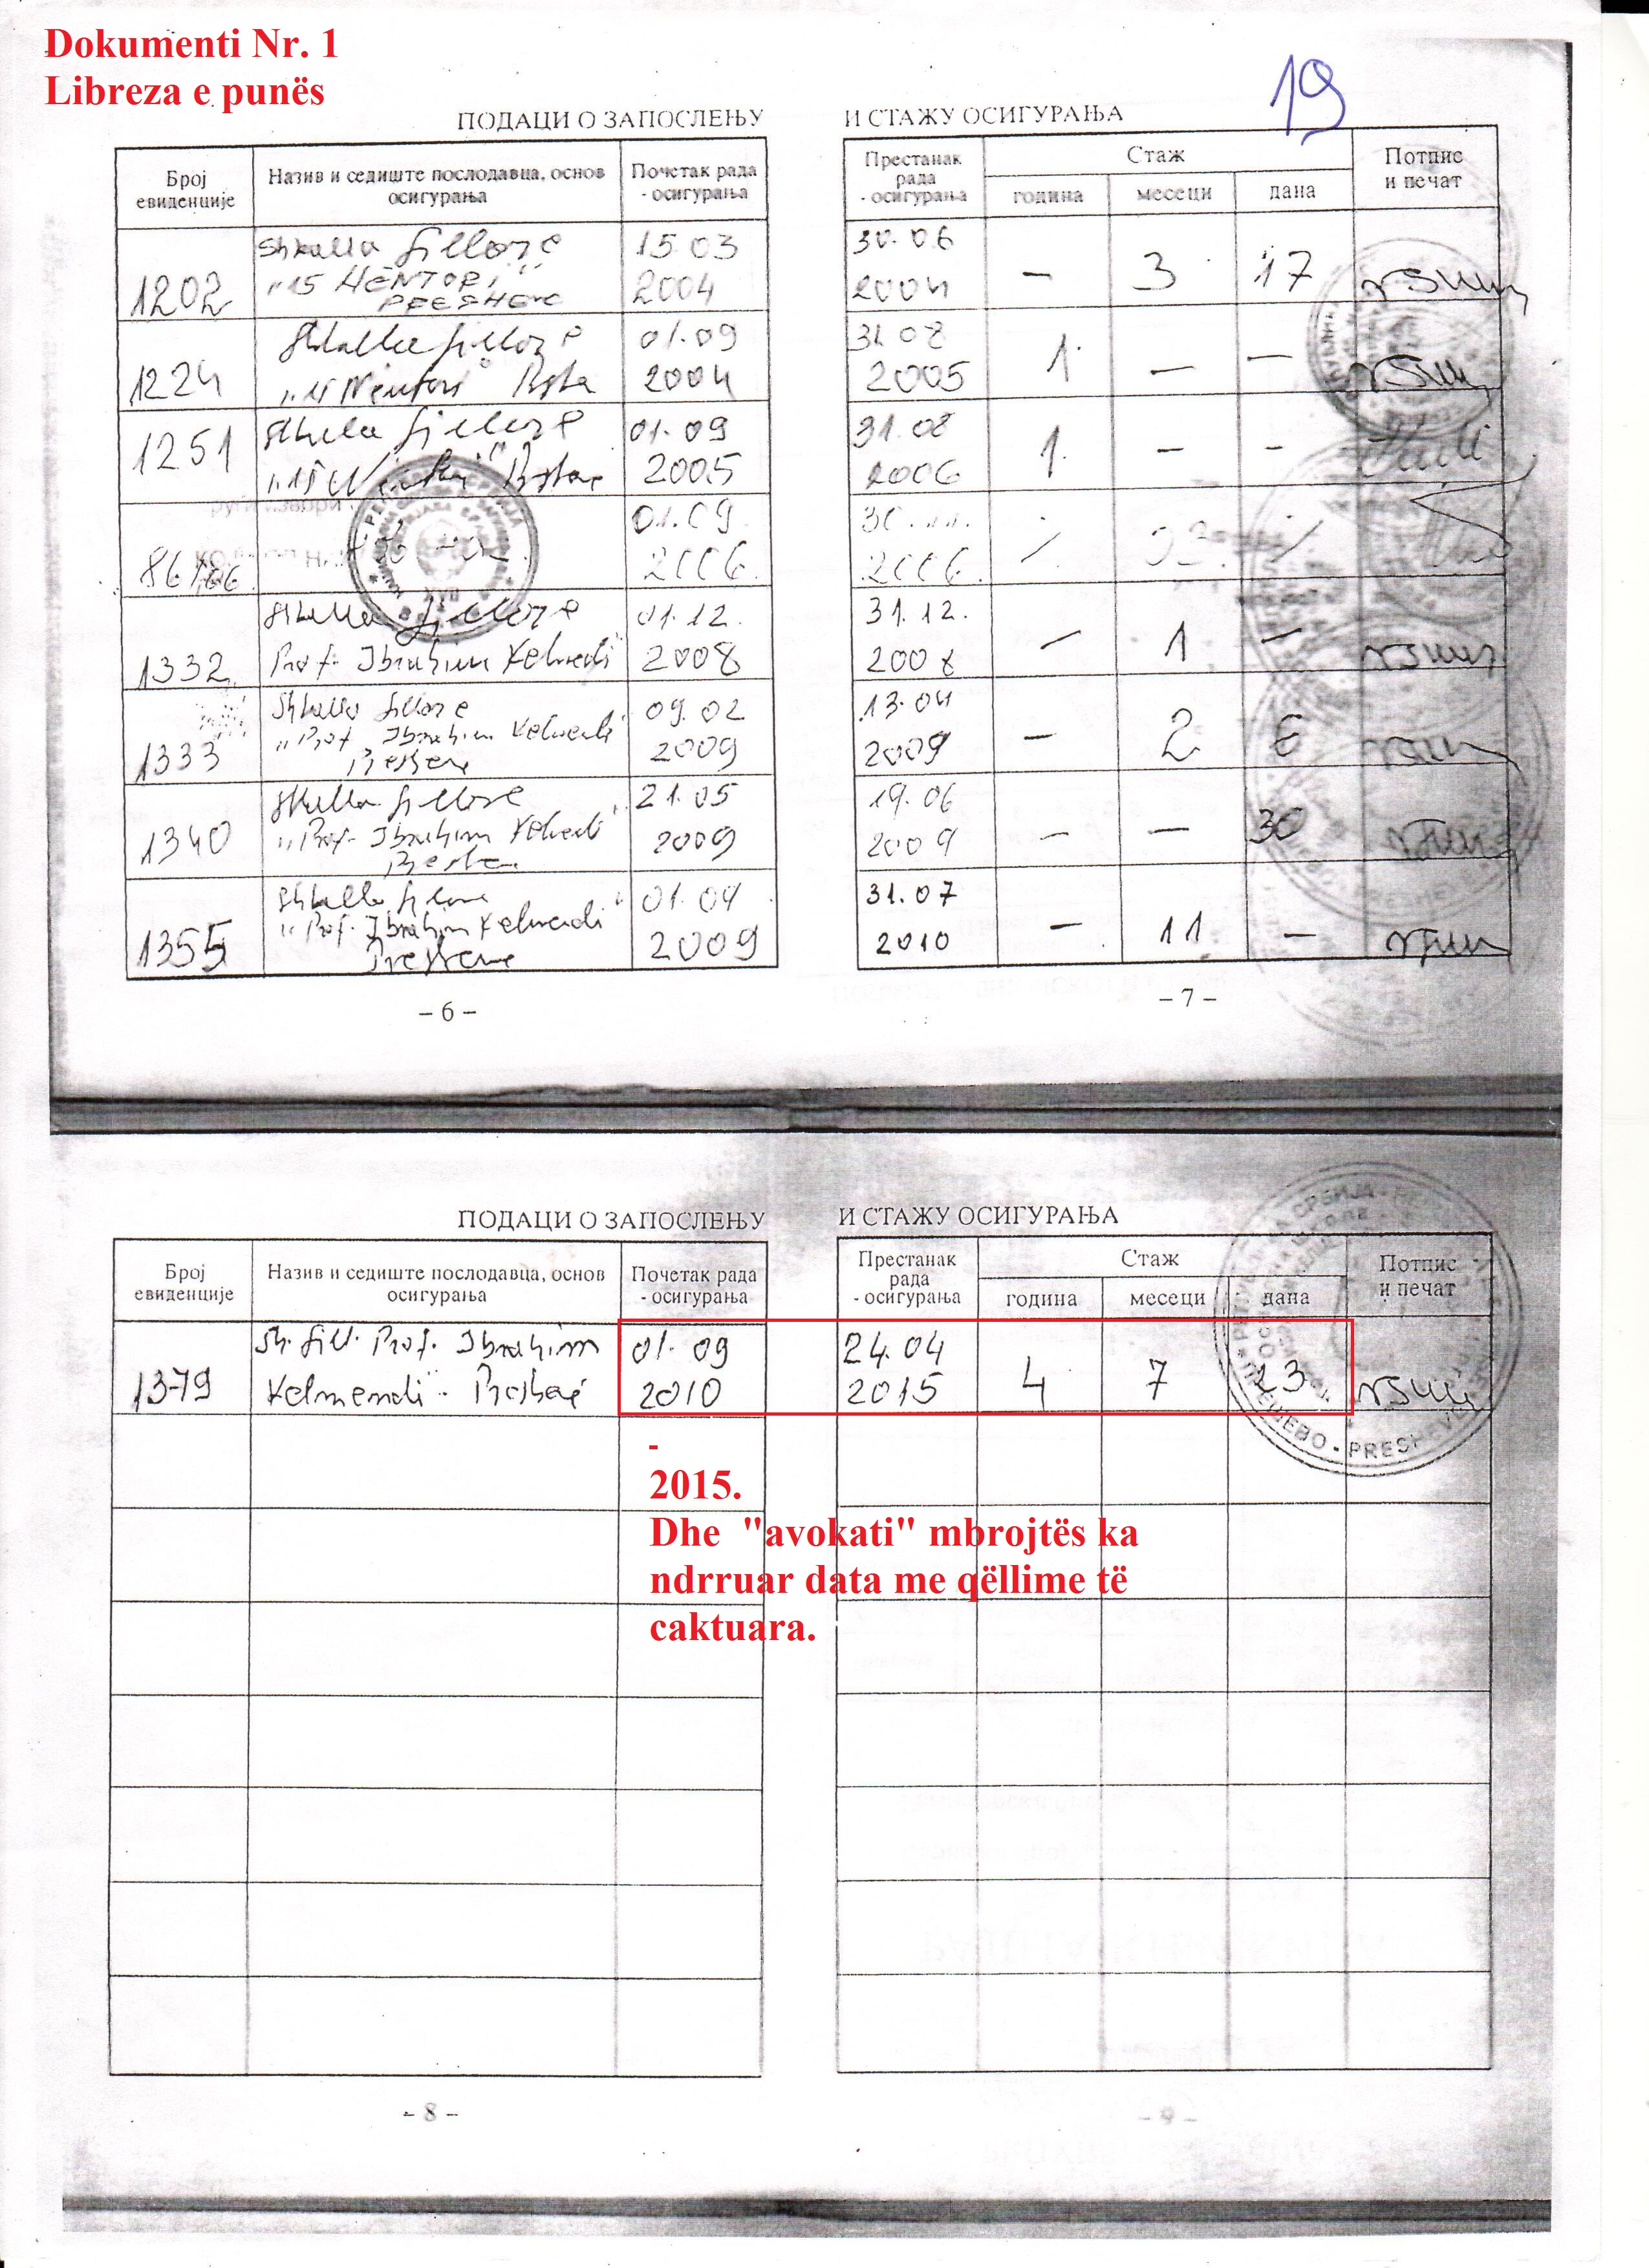 Dokumenti Nr. 1
Libreza e punës
19
ПОДАЦИ О ЗАПОСЛЕЊУ И СТАЖУ ОСИГУРАЊА
Број евиденције
Назив и седиште послодавца, основ осигурања
Почетак рада - осигурања
Престанак рада - осигурања
Стаж
година месеци дана
Потпис и печат
1202 Shkolla fillore 15.03 2004 30.06 2004 – 3 17
1224 Shkolla fillore 01.09 2004 31.08 2005 1 – –
1251 Shkolla fillore 01.09 2005 31.08 2006 1 – –
01.09. 2006. 30. 2006.
1332 Shkolla fillore Prof. Ibrahim Kelmendi 01.12. 2008 31.12. 2008 – 1 –
1333 Shkolla fillore "Prof. Ibrahim Kelmendi" 09.02 2009 13.04 2009 – 2 6
1340 Shkolla fillore "Prof. Ibrahim Kelmendi" 21.05 2009 19.06 2009 – – 30
1355 Shkolla fillore "Prof. Ibrahim Kelmendi" 2009 31.07 2010 – 11 –
– 6 –
– 7 –
ПОДАЦИ О ЗАПОСЛЕЊУ И СТАЖУ ОСИГУРАЊА
Број евиденције
Назив и седиште послодавца, основ осигурања
Почетак рада - осигурања
Престанак рада - осигурања
Стаж
година месеци дана
Потпис и печат
1379 Sh. fill. Prof. Ibrahim Kelmendi" 01.09 2010 24.04 2015 4 7 23
ПРЕШЕВО · PRESHEVË
-
2015.
Dhe "avokati" mbrojtës ka
ndrruar data me qëllime të
caktuara.
– 8 –
– 9 –